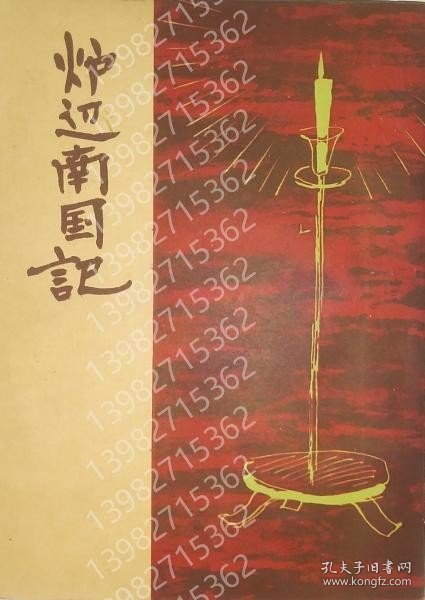 炉辺南国記
13982715362
13982715362
13982715362
13982715362
13982715362
13982715362
13982715362
13982715362
13982715362
13982715362
13982715362
13982715362
孔夫子旧书网
www.kongfz.com